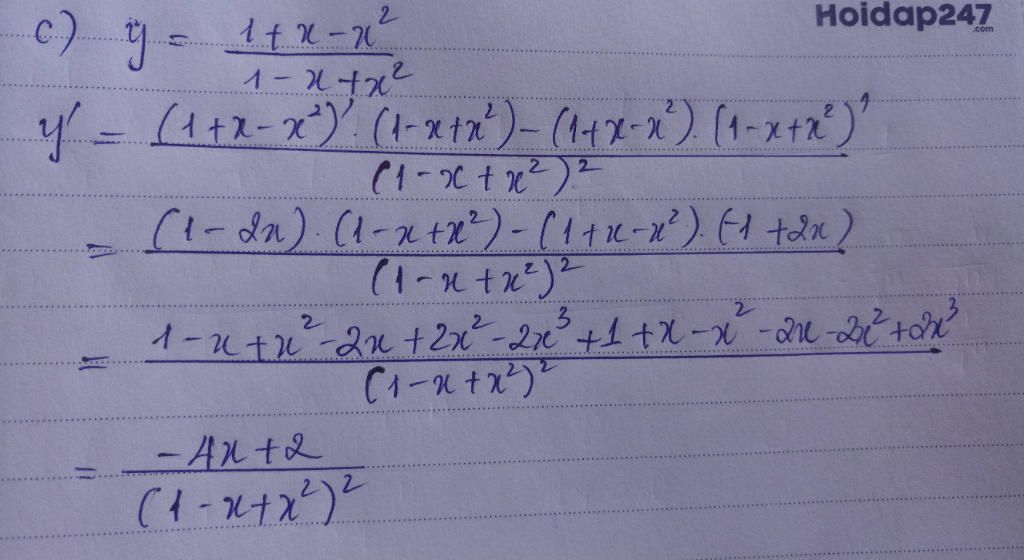 Hoidap247
.com
c) y = (1 + x - x²) / (1 - x + x²)
y' = ((1+x-x²)'.(1-x+x²)-(1+x-x²).(1-x+x²)') / (1-x+x²)²
= ((1-2x).(1-x+x²)-(1+x-x²).(-1+2x)) / (1-x+x²)²
= (1-x+x²-2x+2x²-2x³+1+x-x²-2x-2x²+2x³) / (1-x+x²)²
= (-4x+2) / (1-x+x²)²